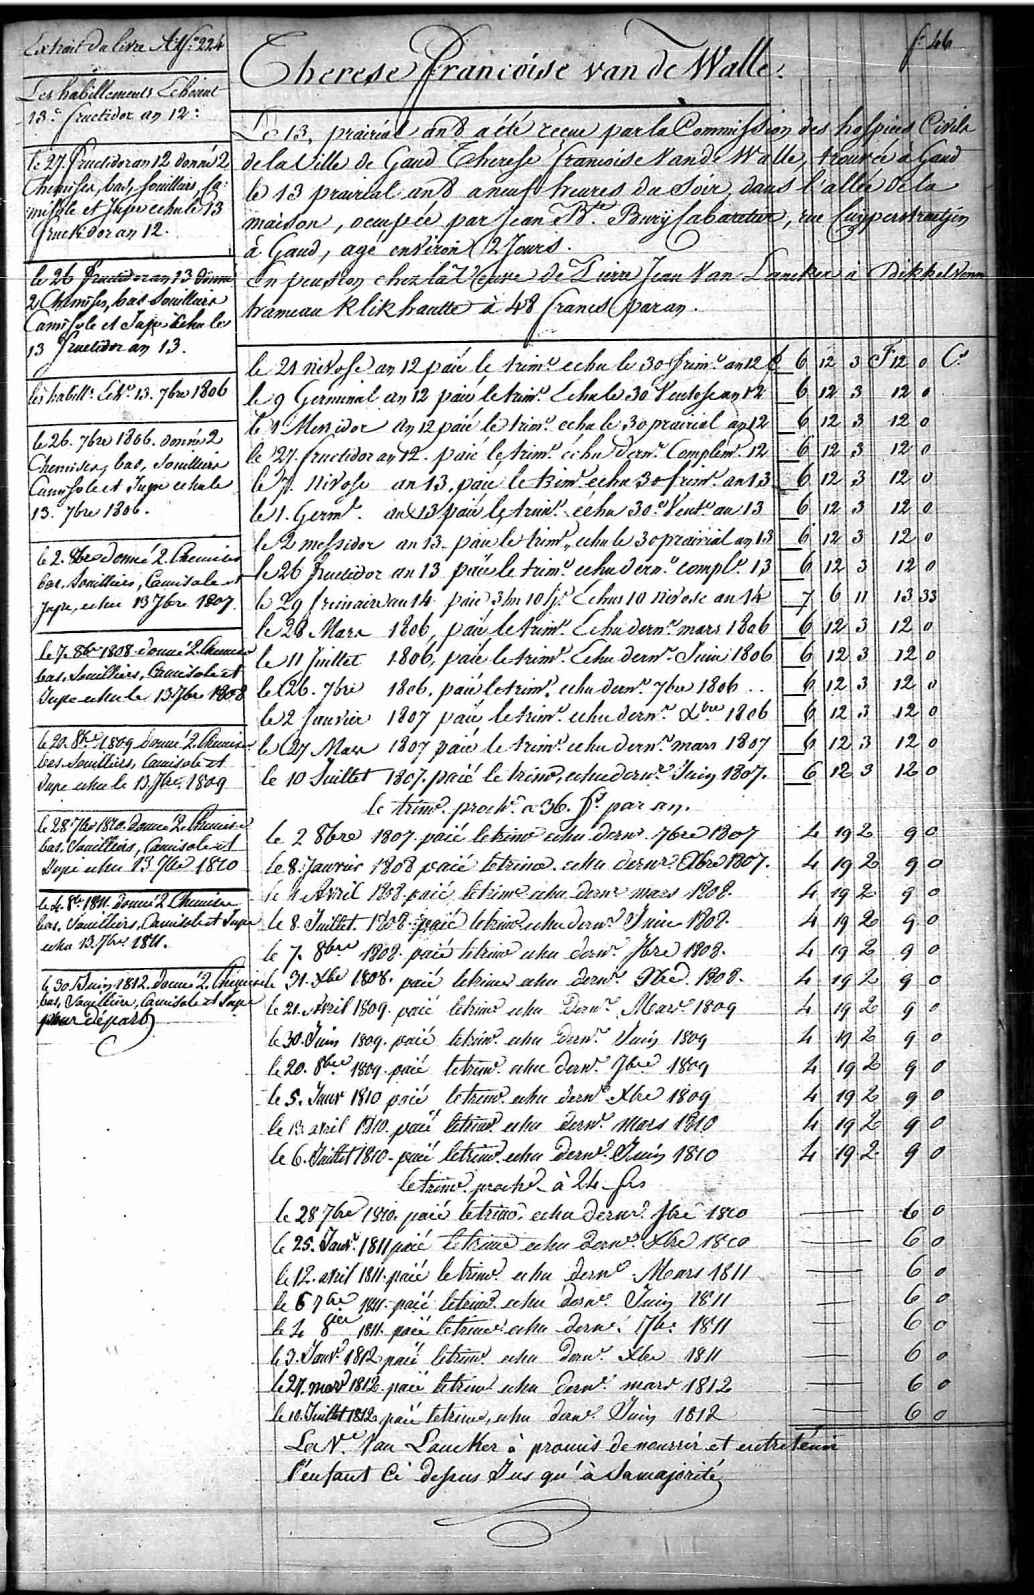 f. 46
Extrait du livre A f.º 224
Les habillements Echeant
13.e fructidor an 12:
le 27. fructidor an 12 donné 2
Chemises, bas, souilliers, ca=
misole et Jupe echu le 13
fructidor an 12.
le 26 fructidor an 13 donné
2 Chemises, bas souilliers
Camisole et Jupe Echu le
13 fructidor an 13.
les habill.s Ech.s 13. 7bre 1806
le 26. 7bre 1806. donné 2
Chemises, bas, souilliers
Camisole et Jupe echu le
13. 7bre 1806.
le 2. 8bre donné 2. Chemises
bas. Souilliers, Camisole et
Jupe, echu 13 7bre 1807.
le 7. 8bre 1808 donné 2. Chemises
bas. Souilliers, Camisole et
Jupe echu le 13 7bre 1808
le 20. 8bre 1809 donné 2. Chemises
bas Souilliers, Camisole et
Jupe echu le 13. 7bre 1809
le 28 7bre 1810. donné 2. Chemises
bas. Souilliers, Camisole et
Jupe echu 13. 7bre 1810
le 4. 8bre 1811. donné 2 Chemises
bas. Souilliers, Camisole et Jupe
echu 13. 7bre 1811.
le 30 Juin 1812. Donné 2. Chemises
bas, Souilliers, Camisole et Jupe
pour départ
Therese Francoise van de Walle.
Le 13, prairial an 8 a été recue par la Commission des hospices Civils
de la Ville de Gand Therese francoise Van de Walle, trouvée à Gand
le 13 prairial an 8 a neuf heures du Soir, dans l'allée de la
maison, ocupée par Jean Bte Burij Cabaretier, rue Cuijperstraetjen
à Gand, agé environ 2 Jours.
En pension chez la Veuve de Pierre Jean Van Laucker à Dikkelvenne
hameau klikhautte à 48 francs par an.
le 21 nivose an 12 paié le trim.e echu le 30 frim.e an 12 £ 6 12 3 F 12 0 C.s
le 9 Germinal an 12 paié le trim.e Echu le 30 Ventose an 12 6 12 3 12 0
le 1 Messidor an 12 paié le trim.e echu le 30 prairial an 12 6 12 3 12 0
le 27. fructidor an 12. paié le trim.e échu dern.r Complem.e 12 6 12 3 12 0
le 7. Nivose an 13, paié le trim.e echu 30 frim.e an 13 6 12 3 12 0
le 1. Germ.l an 13 paié le trim.e échu 30.e Vent.e an 13 6 12 3 12 0
le 2 messidor an 13. paié le trim.e echu le 30 prairial an 13 6 12 3 12 0
le 26 fructidor an 13 paié le trim.e echu dern.r compl.e 13 6 12 3 12 0
le 29 frimaire an 14 paié 3 m 10 js. Echus 10 nivose an 14 7 6 11 13 33
le 28 Mars 1806, paié le trim.e Echu dern.r mars 1806 6 12 3 12 0
le 11 Juillet 1806, paié le trim.e Echu dern.r Juin 1806 6 12 3 12 0
le 26. 7bre 1806. paié le trim.e echu dern.r 7bre 1806 .. 6 12 3 12 0
le 2 Janvier 1807 paié le trim.e echu dern.r Xbre 1806 6 12 3 12 0
le 27 Mars 1807 paié le trim.e echu dern.r mars 1807 6 12 3 12 0
le 10 Juillet 1807. paié le trim.e echu dern.r Juin 1807. 6 12 3 12 0
le trim.e proch.n a 36. f.s par an.
le 2 8bre 1807. paié le trim.e echu dern.r 7bre 1807 4 19 2 9 0
le 8. Janvier 1808 paié le trim.e echu dern.r Xbre 1807. 4 19 2 9 0
le 1 Avril 1808. paié le trim.e echu dern.r mars 1808. 4 19 2 9 0
le 8. Juillet. 1808. paié le trim.e echu dern.r Juin 1808. 4 19 2 9 0
le 7. 8bre 1808. paié le trim.e echu dern.r 7bre 1808. 4 19 2 9 0
le 31. Xbre 1808. paié le trim.e echu dern.r Xbre 1808. 4 19 2 9 0
le 21. Avril 1809. paié le trim.e echu Dern.r Mars 1809 4 19 2 9 0
le 30. Juin 1809. paié le trim.e echu dern.r Juin 1809 4 19 2 9 0
le 20. 8bre 1809. paié le trim.e echu dern.r 7bre 1809 4 19 2 9 0
le 5. Janv 1810 paié le trim.e echu dern.r Xbre 1809 4 19 2 9 0
le 13 avril 1810. paié le trim.e echu dern.r mars 1810 4 19 2 9 0
le 6. Juillet 1810. paié le trim.e echu dern.r Juin 1810 4 19 2. 9 0
le trim.e proch.n à 24 frs
le 28 7bre 1810. paié le trim.e echu dern.r 7bre 1810 6 0
le 25. Janv.r 1811 paié le trim.e echu dern.r Xbre 1810 6 0
le 12. avril 1811. paié le trim.e echu dern.r Mars 1811 6 0
le 6 7bre 1811. paié le trim.e echu dern.r Juin 1811 6 0
le 4 8bre 1811. paié le trim.e echu dern.r 7bre 1811 6 0
le 3. Janv.r 1812 paié le trim.e echu dern.r Xbre 1811 6 0
le 27. mars 1812. paié le trim.e echu dern.r mars 1812 6 0
le 10. Juillet 1812 paié le trim.e echu dern.r Juin 1812 6 0
La V.e Van Laucker à promis de nourrir et entretenir
l'enfant Ci dessus Jus qu'à Sa majorité